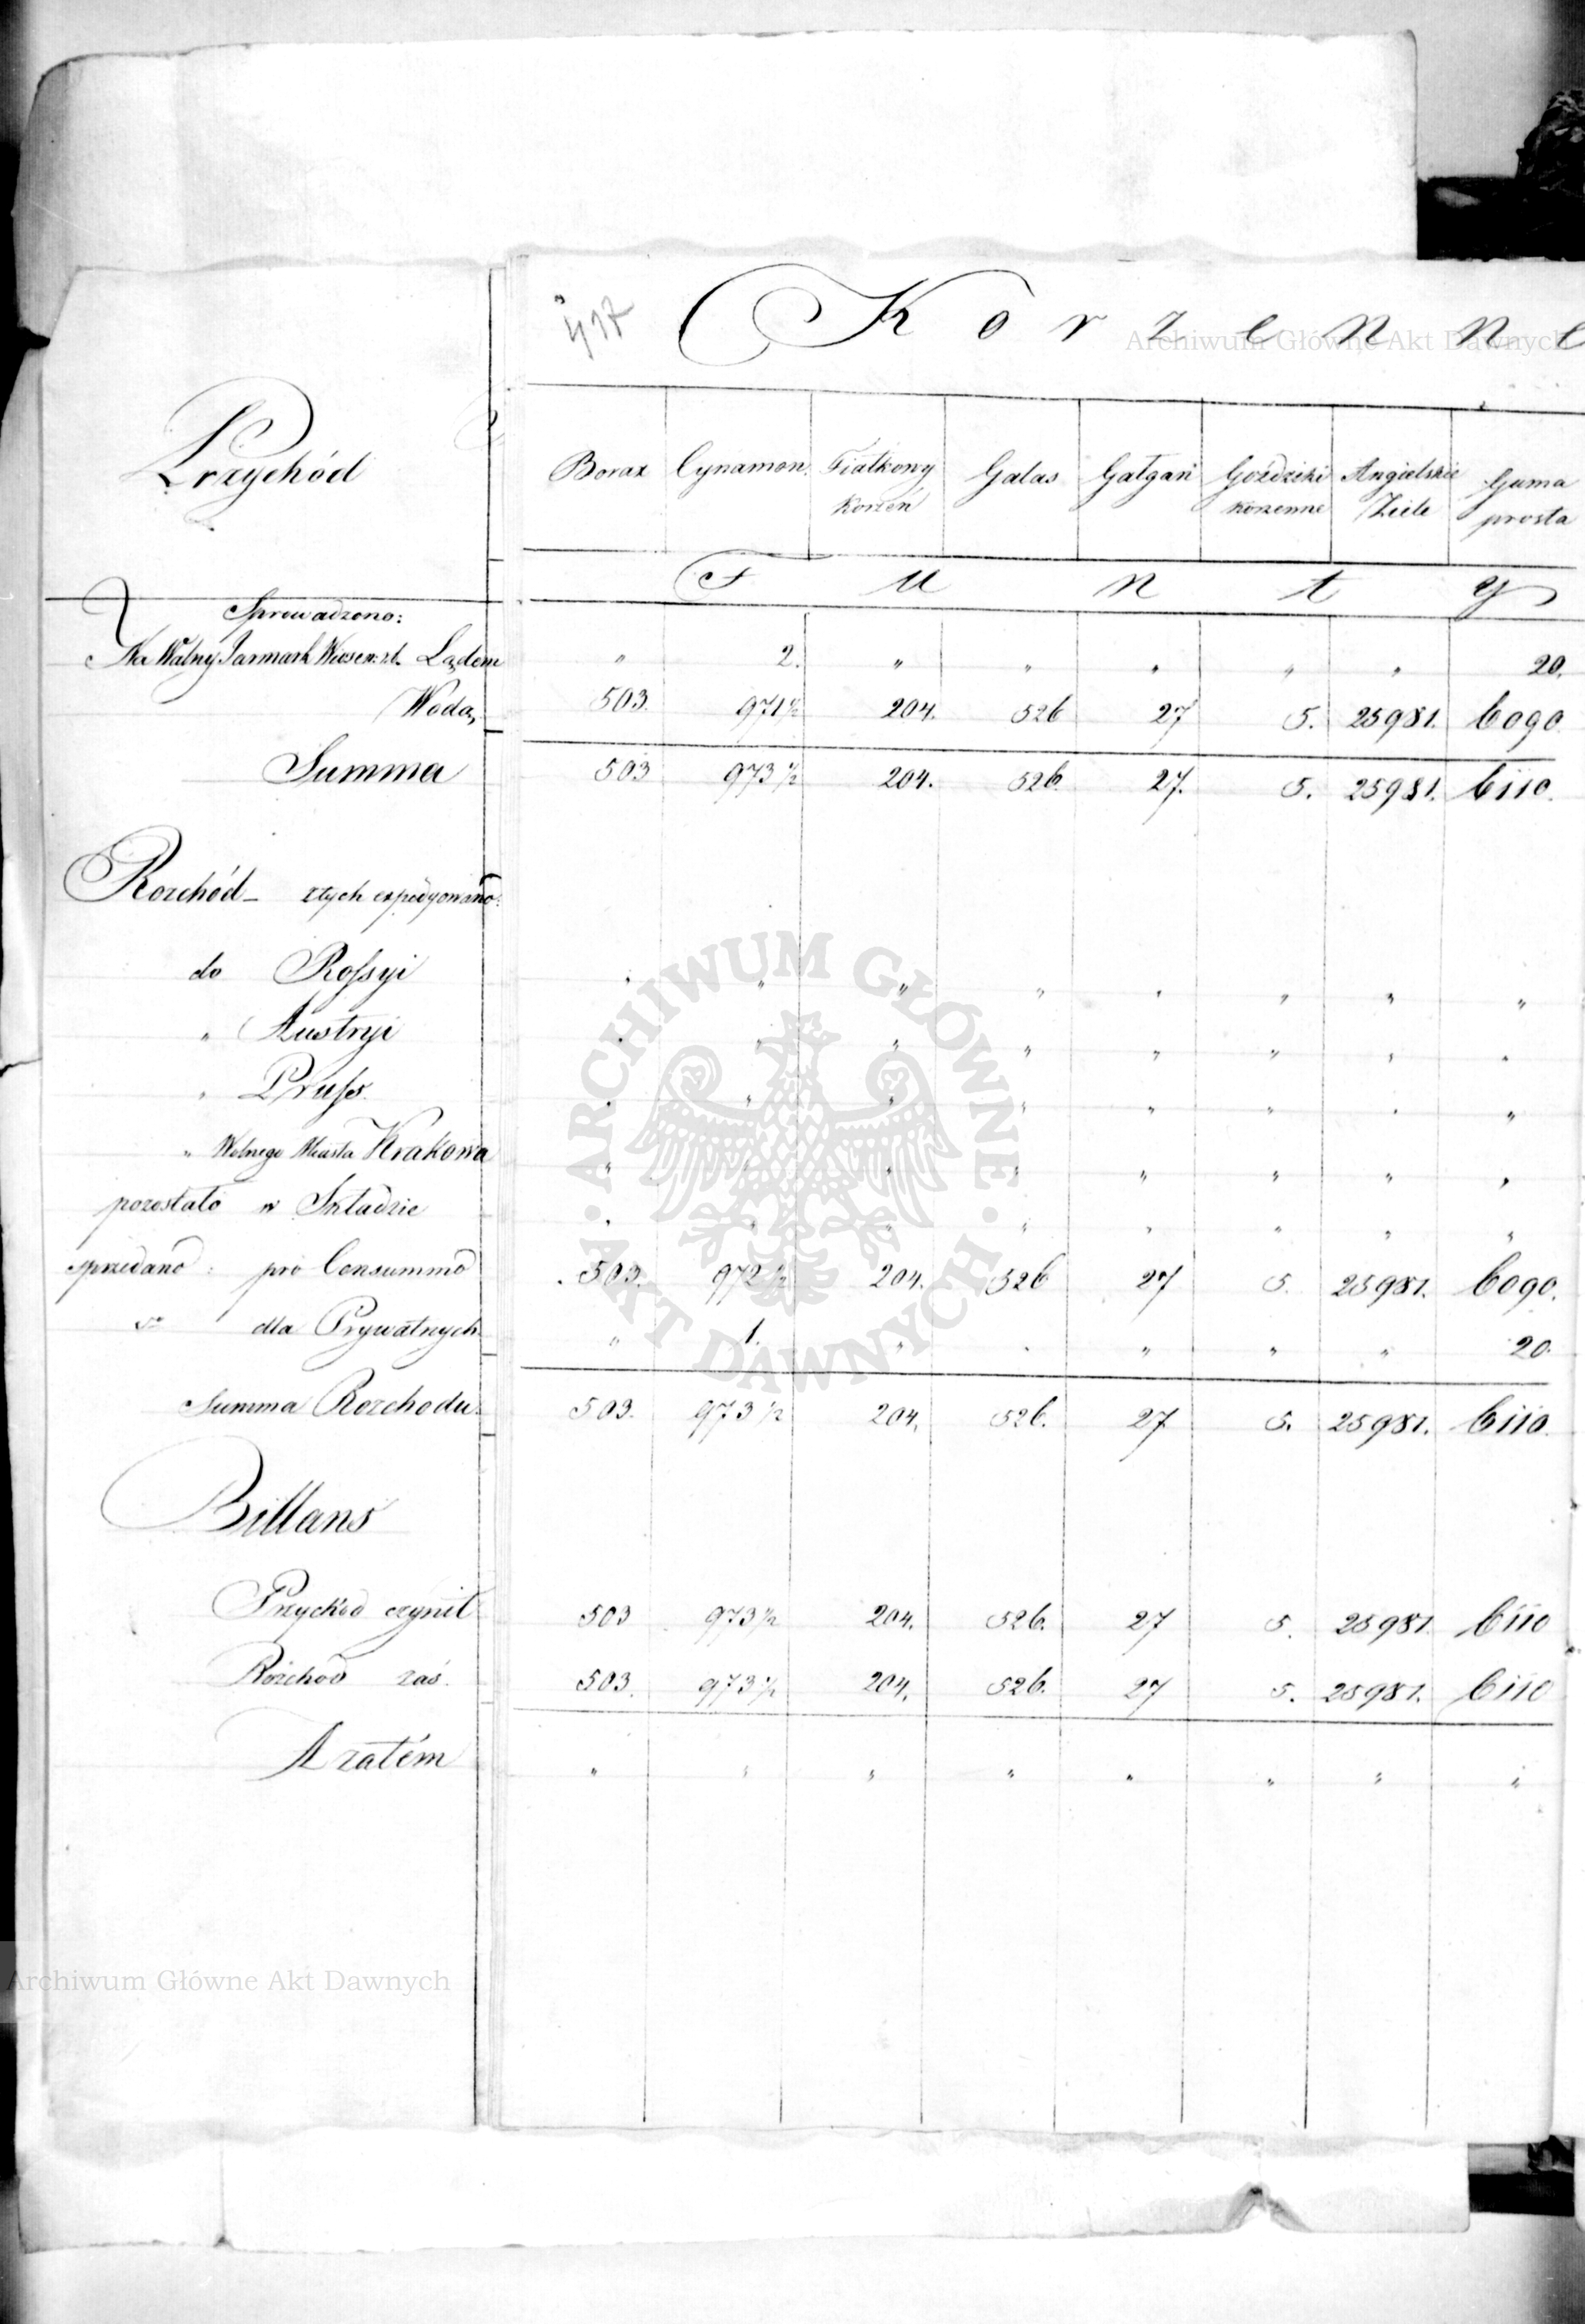 417 Korzenne
Archiwum Główne Akt Dawnych
Przychód
Borax Cynamon. Fiałkowy Korzeń Galas Gałgan Goździki korzenne Angielskie Ziele Guma prosta
F u n t y
Sprowadzono:
Na Walny Jarmark Wiosen: zł. Lądem " 2. " " " " " 20.
Wodą, 503. 971½ 204. 526 27 5. 25981. 6090.
Summa 503 973½ 204. 526. 27. 5. 25981. 6110.
Rozchód – z tych expedyowano:
do Rossyi " " " " " " " "
" Austryi " " " " " " " "
" Pruss. " " " " " " " "
" Wolnego Miasta Krakowa " " " " " " " "
pozostało w Składzie " " " " " " " "
sprzedano: pro Consummo 503. 972½ 204. 526 27 5. 25981. 6090.
dla Prywatnych " 1. " " " " " 20.
Summa Rozchodu. 503. 973½ 204. 526. 27 5. 25981. 6110.
Billans
Przychód czynił 503 973½ 204. 526. 27 5. 25981. 6110
Rozchód zaś. 503. 973½ 204. 526. 27 5. 25981. 6110
A zatém " " " " " " " "
ARCHIWUM GŁÓWNE AKT DAWNYCH
Archiwum Główne Akt Dawnych